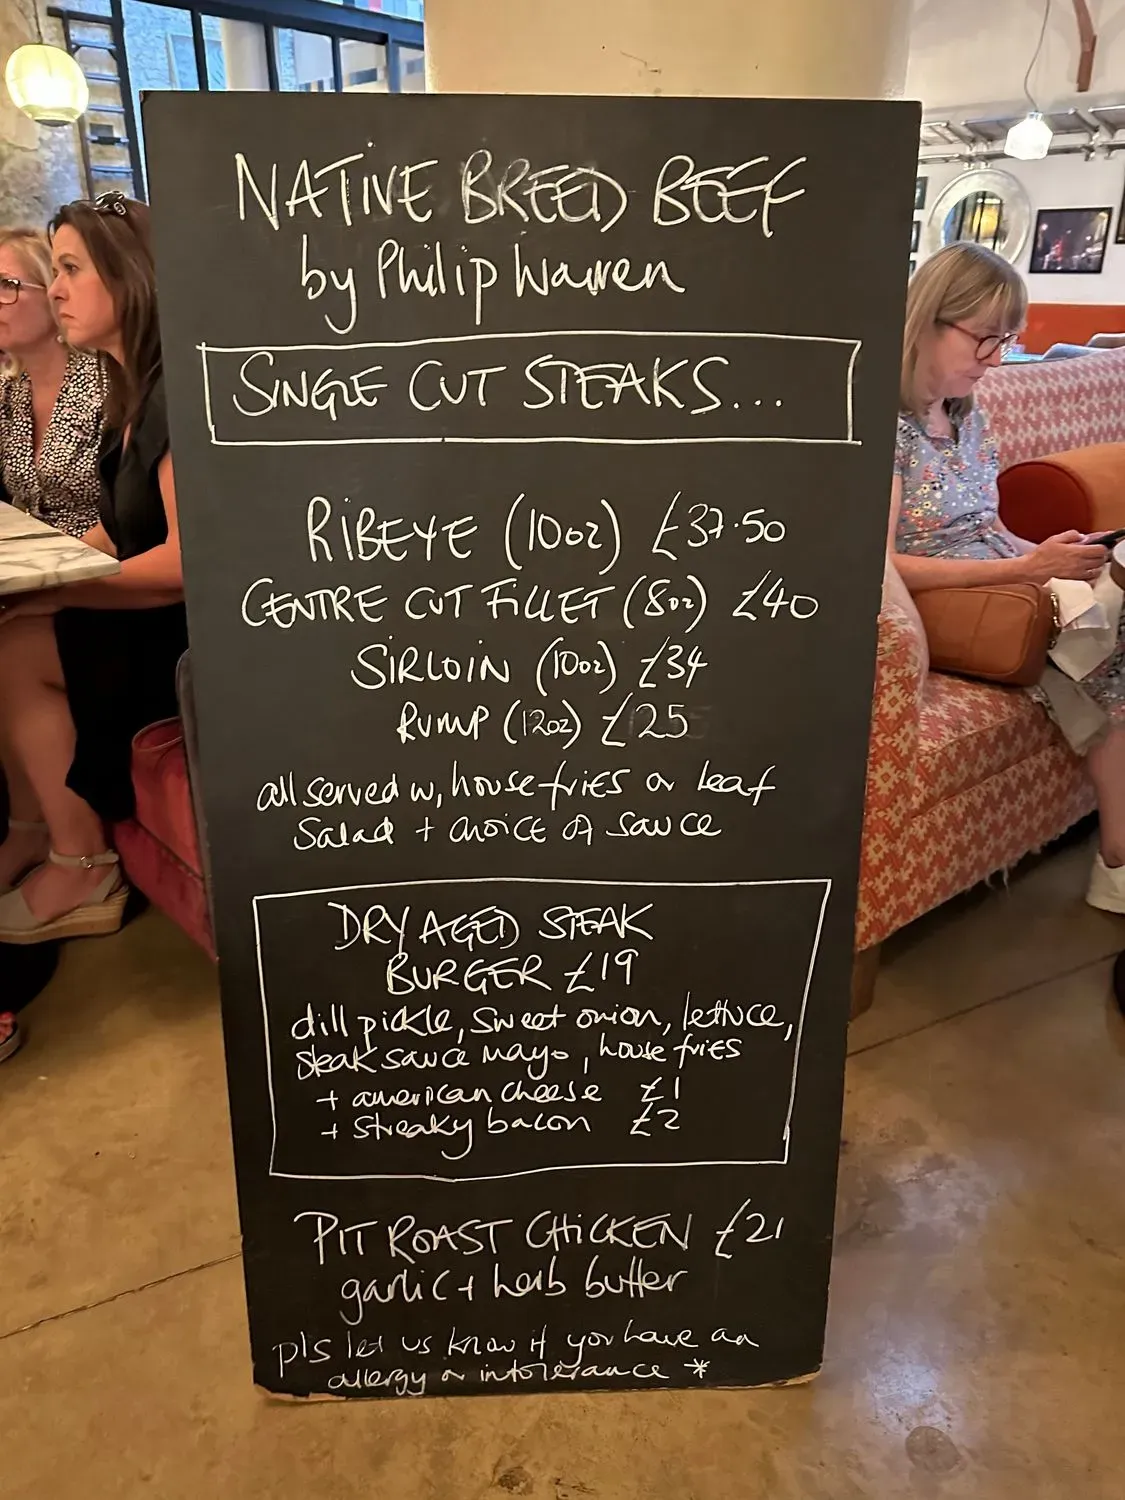 NATIVE BREED BEEF
by Philip Warren
SINGLE CUT STEAKS...
RIBEYE (10oz) £37.50
CENTRE CUT FILLET (8oz) £40
SIRLOIN (10oz) £34
RUMP (12oz) £25
all served w, house fries or leaf
salad + choice of sauce
DRY AGED STEAK
BURGER £19
dill pickle, sweet onion, lettuce,
steak sauce mayo, house fries
+ american cheese £1
+ streaky bacon £2
PIT ROAST CHICKEN £21
garlic + herb butter
pls let us know if you have an
allergy or intolerance *